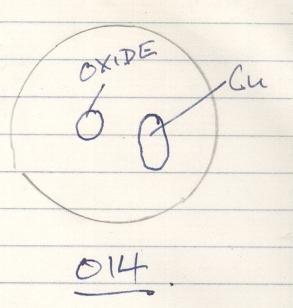 OXIDE
Cu
014.